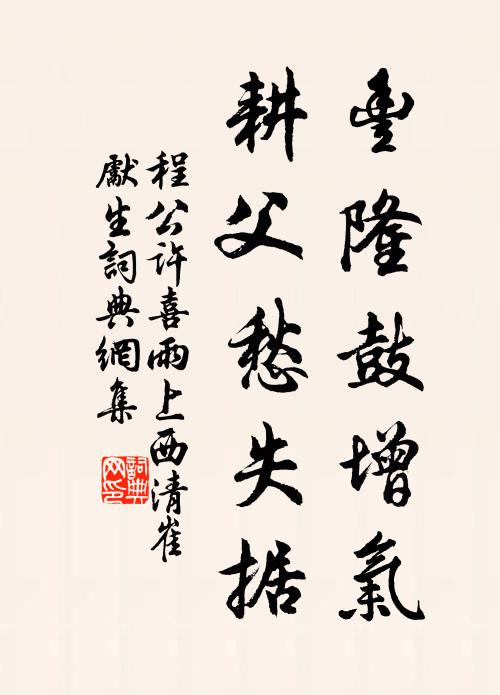 豐隆鼓增氣
耕父愁失据
程公許喜雨上西清崔
獻生詞典網集
詞典網印